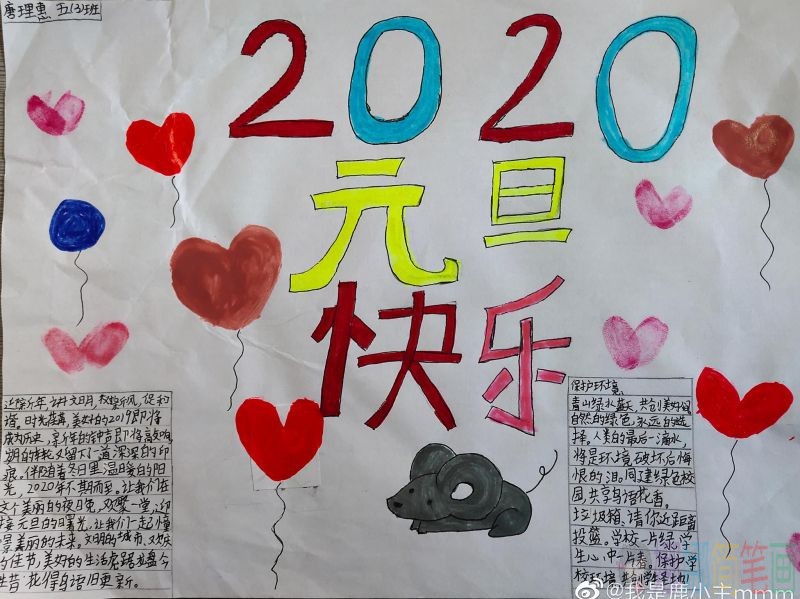 唐理惠 五(3)班
2020
元旦
快乐
迎新年,讲文明,树新风,促和
谐。时光荏苒,美好的2019即将
成为历史,
期的年轮又留下一道深深的印
痕。伴随着冬日里温暖的阳
光,2020年不期而至。让我们在
这个美丽的夜日晚,欢聚一堂,迎
接元旦的曙光,让我们一起憧
景美丽的未来。文明的城市,欢快
的佳节,美好的生活
保护环境
青山绿水蓝天,共创美好
自然的绿色,永远的选
择。人类的最后一滴水,
将是环境破坏后悔
恨的泪。同建绿色校
园,共享鸟语花香。
垃圾箱、请你近距离
投篮。学校一片绿,学
生心中一片春。保护学
校环境
@我是鹿小主mmm